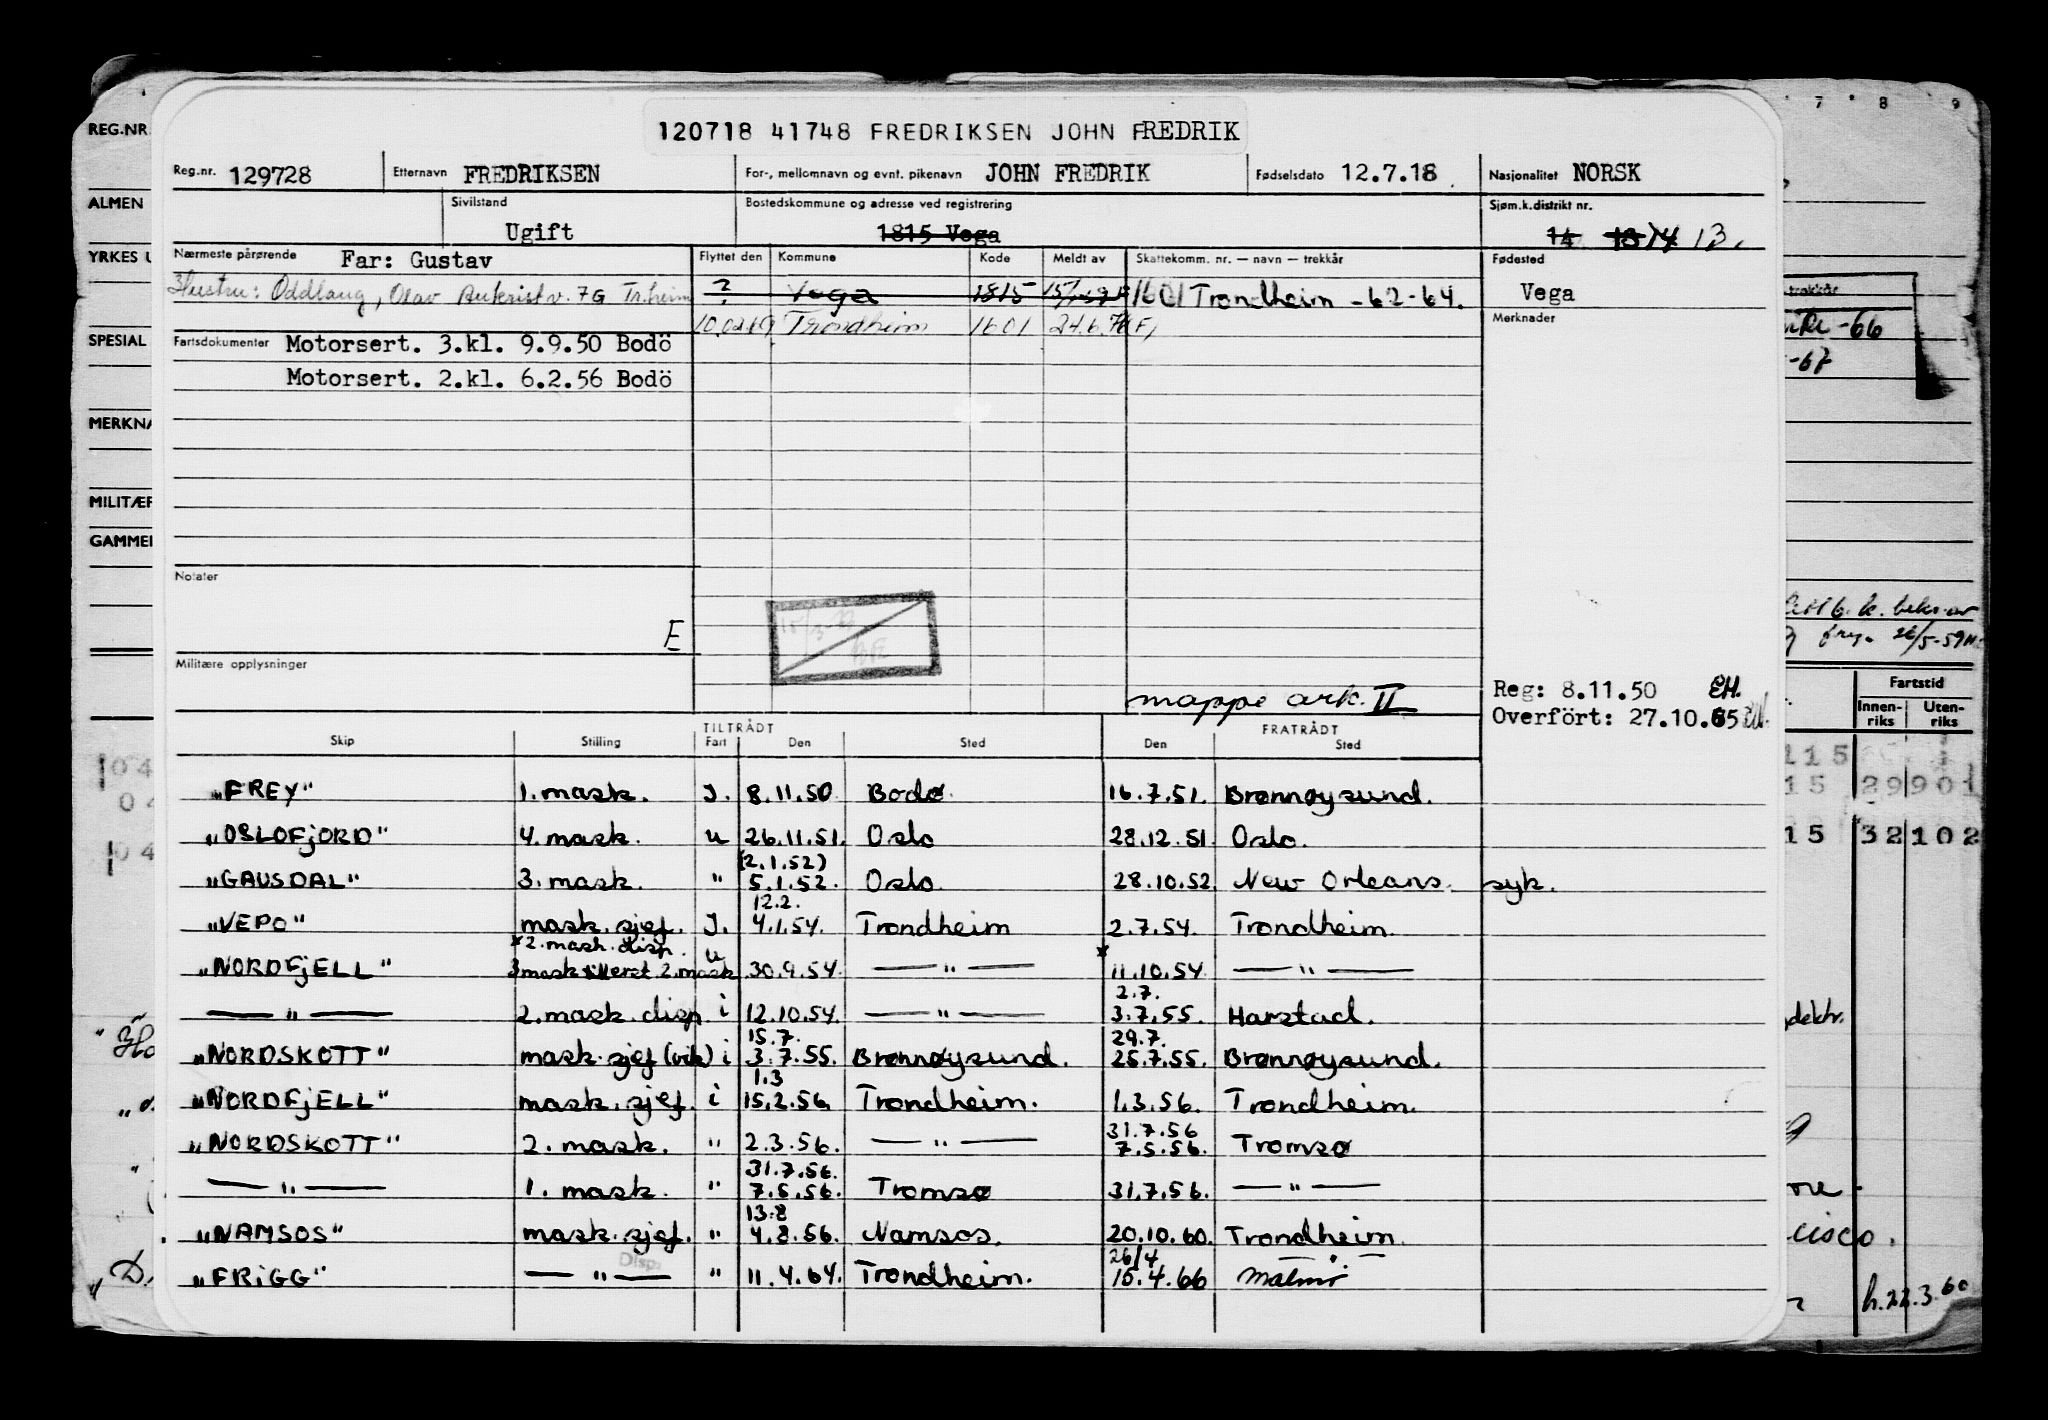 120718 41748 FREDRIKSEN JOHN FREDRIK
Reg.nr. 129728 Etternavn FREDRIKSEN For-, mellomnavn og evnt. pikenavn JOHN FREDRIK Fødselsdato 12.7.18 Nasjonalitet NORSK
Sivilstand Ugift Bostedskommune og adresse ved registrering 1815 Vega Sjøm.k.distrikt nr. 14 13 14 13.
Nærmeste pårørende Far: Gustav Flyttet den Kommune Kode Meldt av Skattekomm. nr. — navn — trekkår Fødested
Hustru: Oddlaug, Olav v. 7G Tr.heim ? Vega 1815 1601 Trondheim -62-64. Vega
Trondheim 1601 24.6. Merknader
Fartsdokumenter Motorsert. 3.kl. 9.9.50 Bodö
Motorsert. 2.kl. 6.2.56 Bodö
Notater
E
Militære opplysninger
mappe ark. II
Reg: 8.11.50 EH.
Overfört: 27.10.65
TILTRÅDT FRATRÅDT
Skip Stilling Fart Den Sted Den Sted
"FREY" 1. mask. J. 8.11.50 Bodø. 16.7.51. Brønnøysund.
"OSLOFjORD" 4. mask. u 26.11.51. Oslo 28.12.51. Oslo.
(2.1.52)
"GAUSDAL" 3. mask. " 5.1.52. Oslo. 28.10.52 New Orleans. syk.
12.2.
"VEPO" mask. sjef. J. 4.1.54. Trondheim 2.7.54. Trondheim.
* 2. mask. disp. *
"NORDFjELL" 3 mask tilleret 2. mask u 30.9.54. — " — 11.10.54 — " —
2.7.
— " — 2. mask. disp i 12.10.54. — " — 3.7.55. Harstad.
15.7. 29.7.
"NORDSKOTT" mask. sjef (vik) i 3.7.55. Brønnøysund. 25.7.55. Brønnøysund.
1.3
"NORDFjELL" mask. sjef. i 15.2.56. Trondheim. 1.3.56. Trondheim.
31.7.56
"NORDSKOTT" 2. mask. " 2.3.56. — " — 7.5.56. Tromsø
31.7.56.
— " — 1. mask. " 7.5.56. Tromsø 31.7.56. — " —
13.8
"NAMSOS" mask. sjef. " 4.8.56. Namsos. 20.10.60. Trondheim.
Disp. 26/4
"FRiGG" — " — " 11.4.64. Trondheim. 15.4.66 Malmö
REG.NR.
ALMEN
YRKES
SPESIAL
MERKNA
MILITÆR
GAMMEL
7 8 9
trekkår
-66
-67
frg. 26/5-59
Fartstid
Innen-riks Uten-riks
115
15 29 901
15 32 102
04
04
04
h.22.3.60